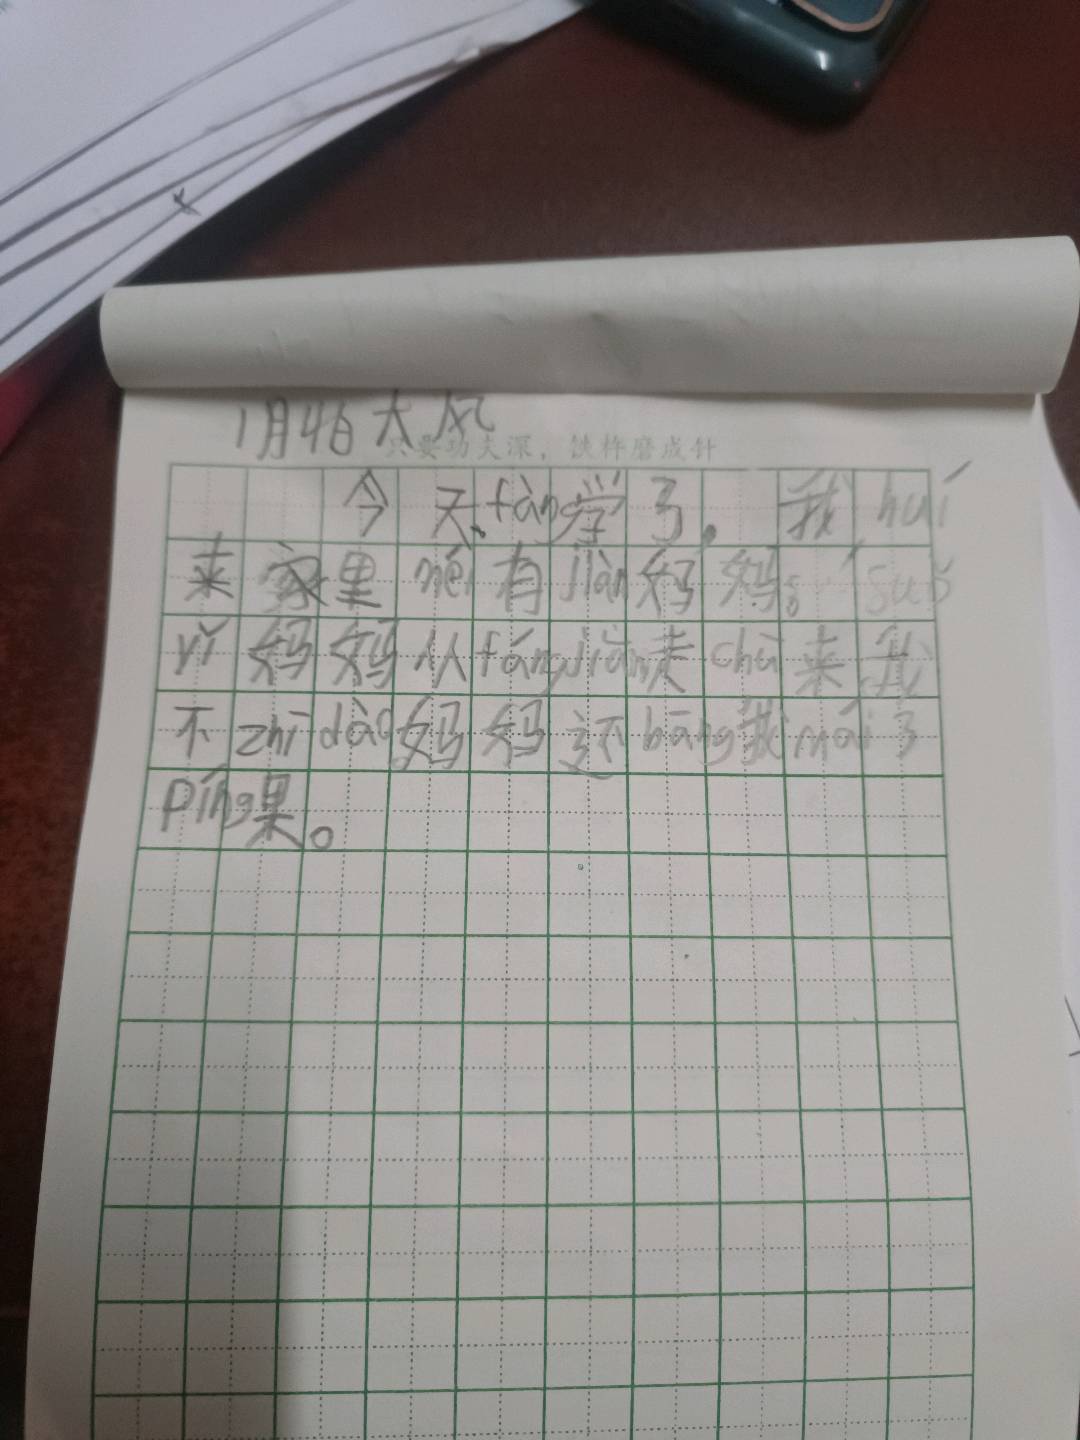 1月4日 大风
只要功夫深，铁杵磨成针
今天fàng学了。我huí
来家里méi有jiàn妈妈。suǒ
yǐ妈妈从fángjiān走chū来我
不zhīdào妈妈还bāng我mǎi了
píng果。